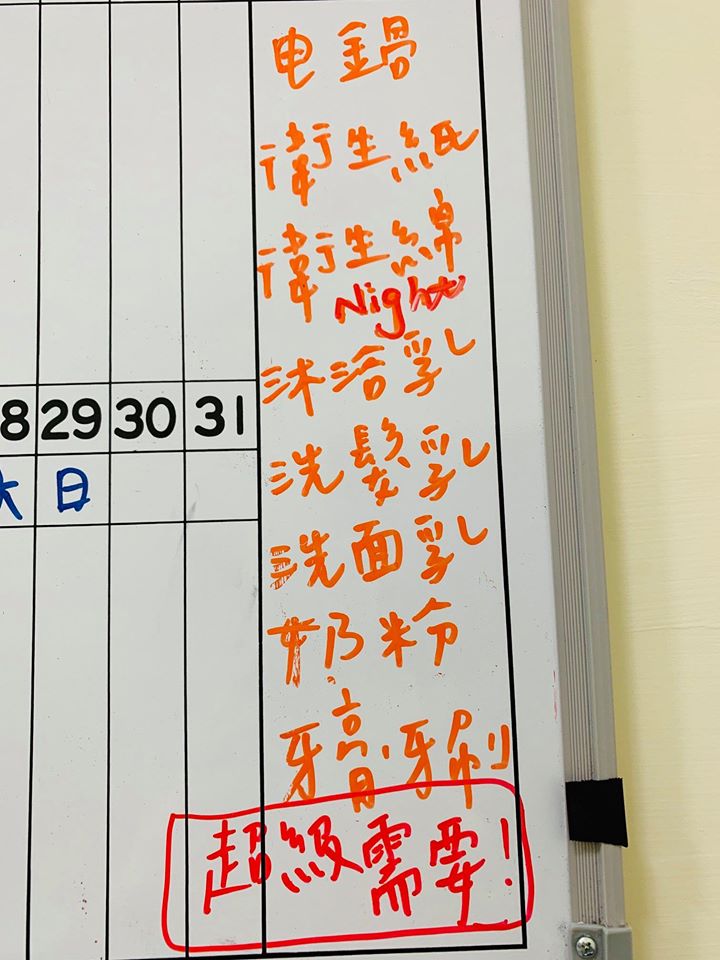 电鍋
衛生紙
衛生綿
Night
沐浴乳
8 29 30 31
洗髮乳
日
洗面乳
奶粉
牙膏、牙刷
超級需要!